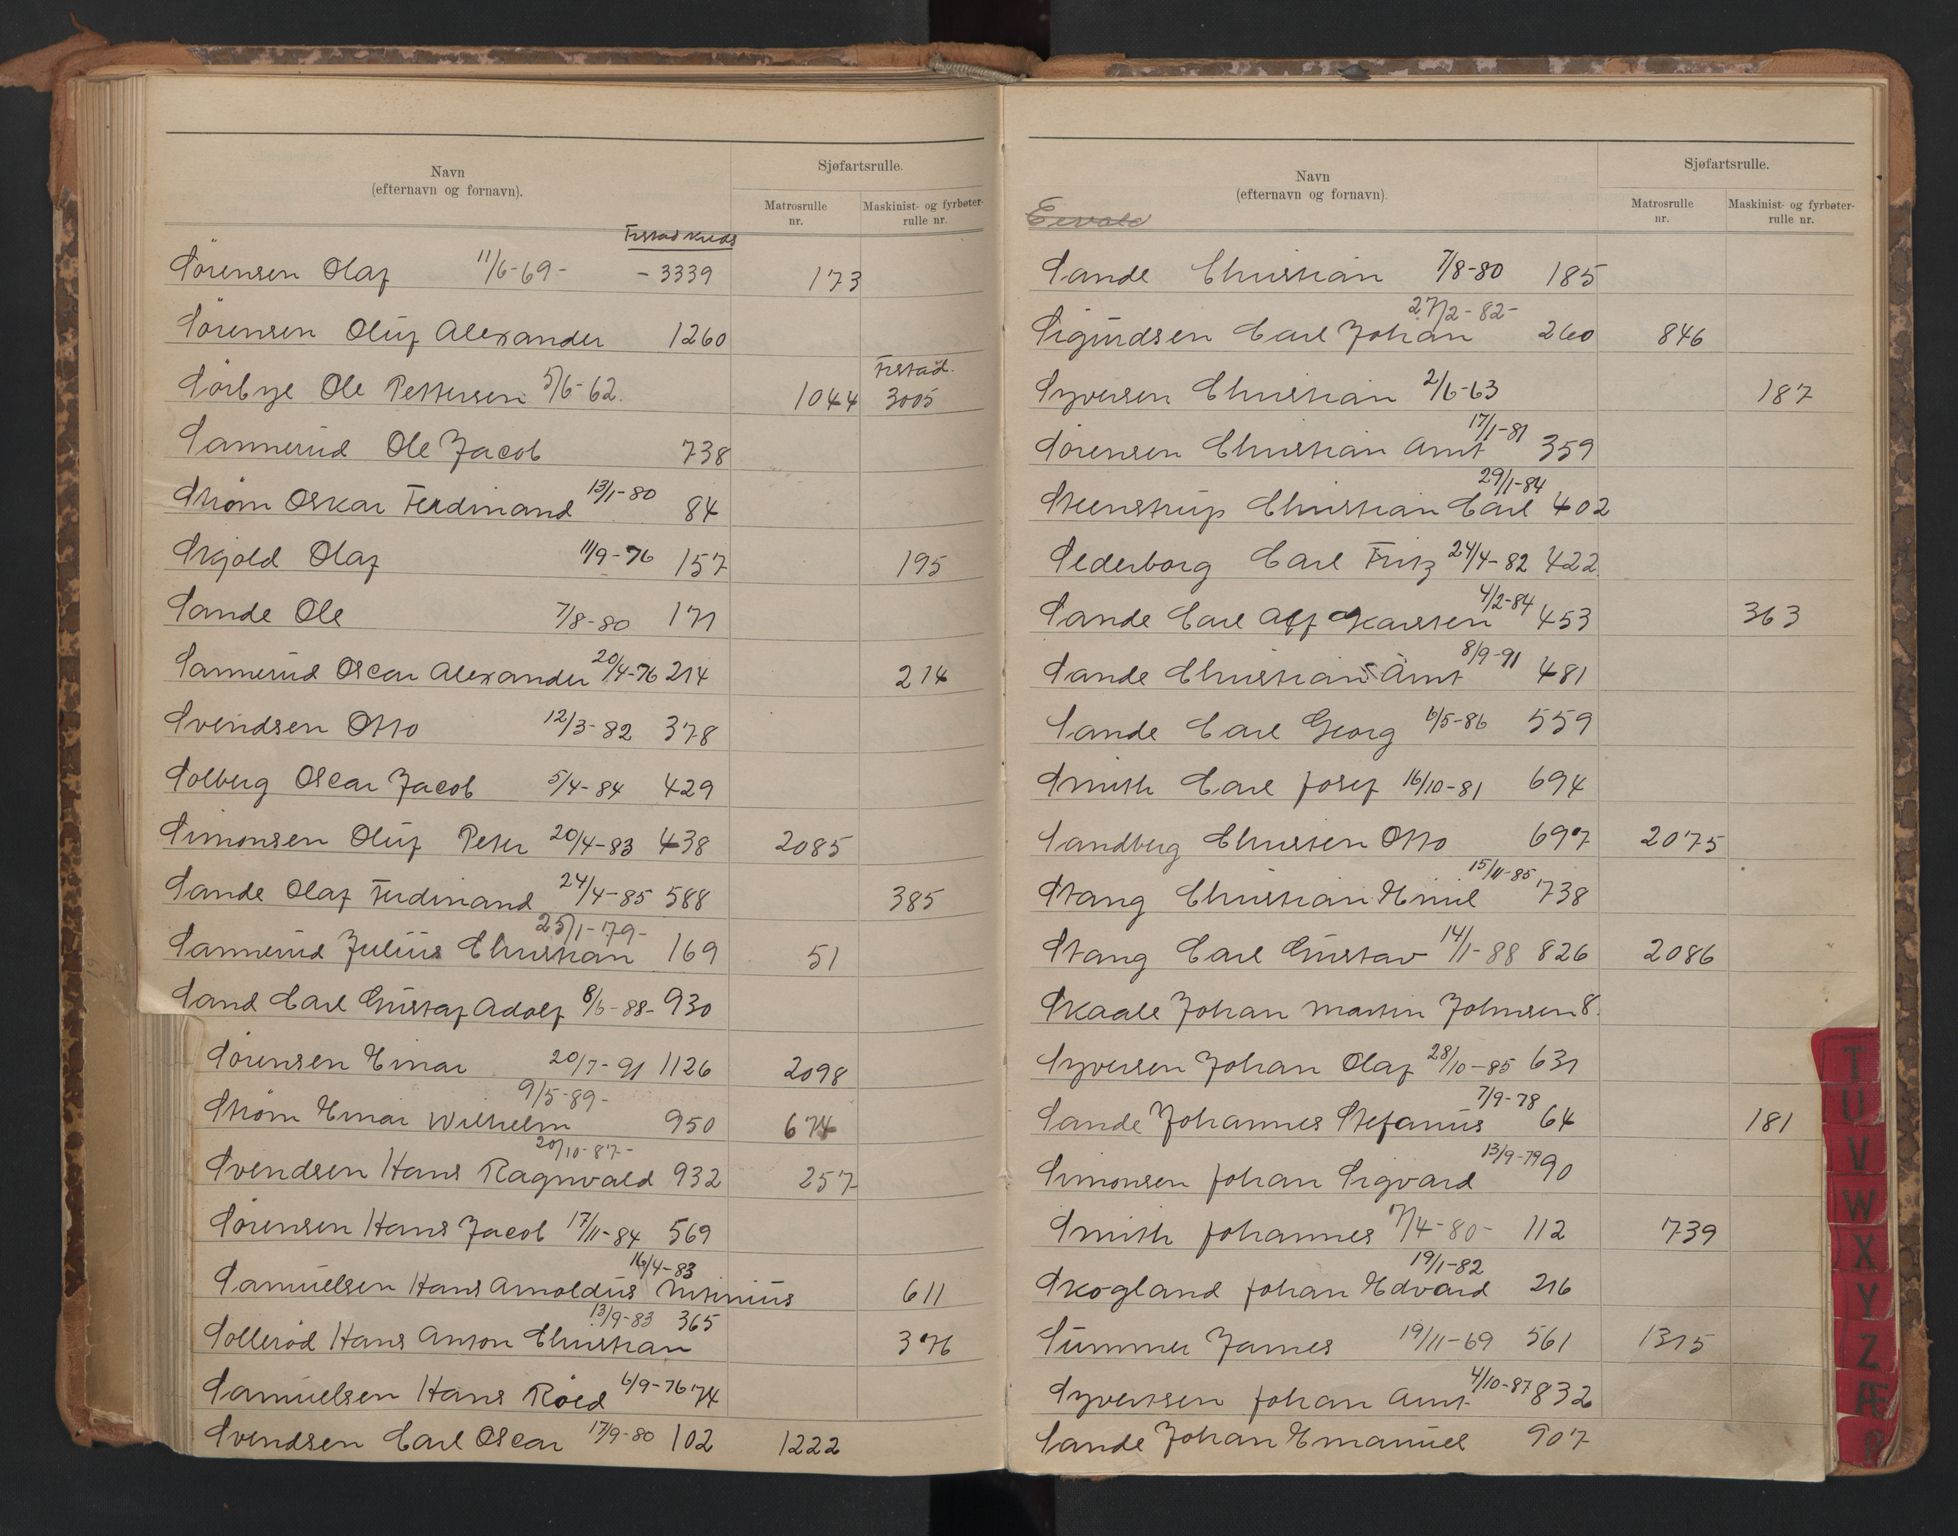 Navn
(efternavn og fornavn).
Sjøfartsrulle.
Matrosrulle
nr.
Maskinist- og fyrbøter-
rulle nr.
Frstad Kreds
Sörensen Olaf 11/6-69- - 3339 173
Sörensen Oluf Alexander 1260
Frstad.
Sörbye Ole Pettersen 5/6-62. 1044 3005
Sannerud Ole Jacob 738
Ström Oskar Ferdinand 13/1-80 84
Skjold Olaf 11/9-76 157 195
Sande Ole 7/8-80 171
Sannerud Oscar Alexander 20/4-76 214 214
Svendsen Otto 12/3-82 378
Solberg Oscar Jacob 5/4-84 429
Simonsen Oluf Peter 20/4-83 438 2085
Sande Olaf Ferdinand 24/4-85 588 385
Sannerud Julius Christian 25/1-79- 169 51
Sand Carl Gustaf Adolf 8/6-88- 930
Sörensen Einar 20/7-91 1126 2098
Ström Einar Wilhelm 9/5-89- 950 674
Svendsen Hans Ragnvald 20/10-87- 932 257
Sörensen Hans Jacob 17/11-84 569
Samuelsen Hans Arnoldus 16/4-83 611
Solleröd Hans Anton Christian 13/9-83 365 376
Samuelsen Hans Röed 6/9-76 74
Svendsen Carl Oscar 17/9-80 102 1222
Navn
(efternavn og fornavn).
Sjøfartsrulle.
Matrosrulle
nr.
Maskinist- og fyrbøter-
rulle nr.
Sande Christian 7/8-80 185
Sigurdsen Carl Johan 27/2-82- 260 846
Syversen Christian 2/6-63 187
Sörensen Christian Arnt 17/1-81 359
Steenstrup Christian Carl 29/1-84 402
Sederborg Carl Fritz 24/4-82 422
Sande Carl Alf Karsten 4/2-84 453 363
Sande Christian S Arnt 8/9-91 481
Sande Carl Georg 6/5-86 559
Smith Carl Josef 16/10-81 694
Sandberg Christen Otto 697 2075
Stang Christian Emil 15/11-85 738
Stang Carl Gustav 14/1-88 826 2086
Skaale Johan Martin Johnsen 8.
Syversen Johan Olaf 28/10-85 631
Sande Johannes Stefanus 7/9-78 64 181
Simonsen Johan Sigvard 13/9-79 90
Smith Johannes 7/4-80- 112 739
Skogland Johan Edvard 19/1-82 216
Summer James 19/11-69 561 1315
Syvertsen Johan Arnt 4/10-87 832
Sande Johan Emanuel 907
T
U
V
W
X
Y
Z
Æ